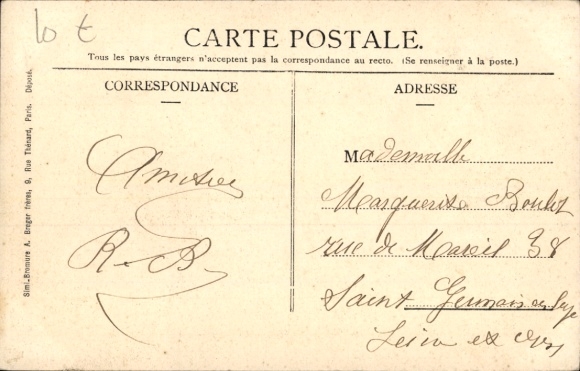 10 €
CARTE POSTALE.
Tous les pays étrangers n'acceptent pas la correspondance au recto. (Se renseigner à la poste.)
CORRESPONDANCE
Amitiés
R. B.
ADRESSE
Mademoiselle
Marguerite Boulet
rue de Mareil 38
Saint Germain en Laye
Seine et Oise
Simi-Bromure A. Breger frères, 9, Rue Thénard, Paris. Déposé.